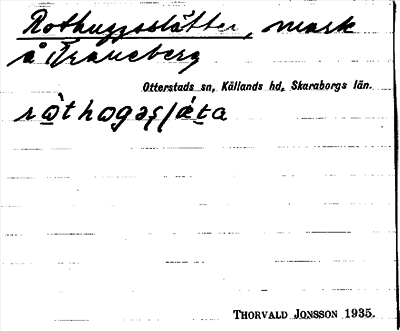 Rothuggsslätten, mark
å Traneberg
Otterstads sn, Kållands hd, Skaraborgs län.
THORVALD JONSSON 1935.